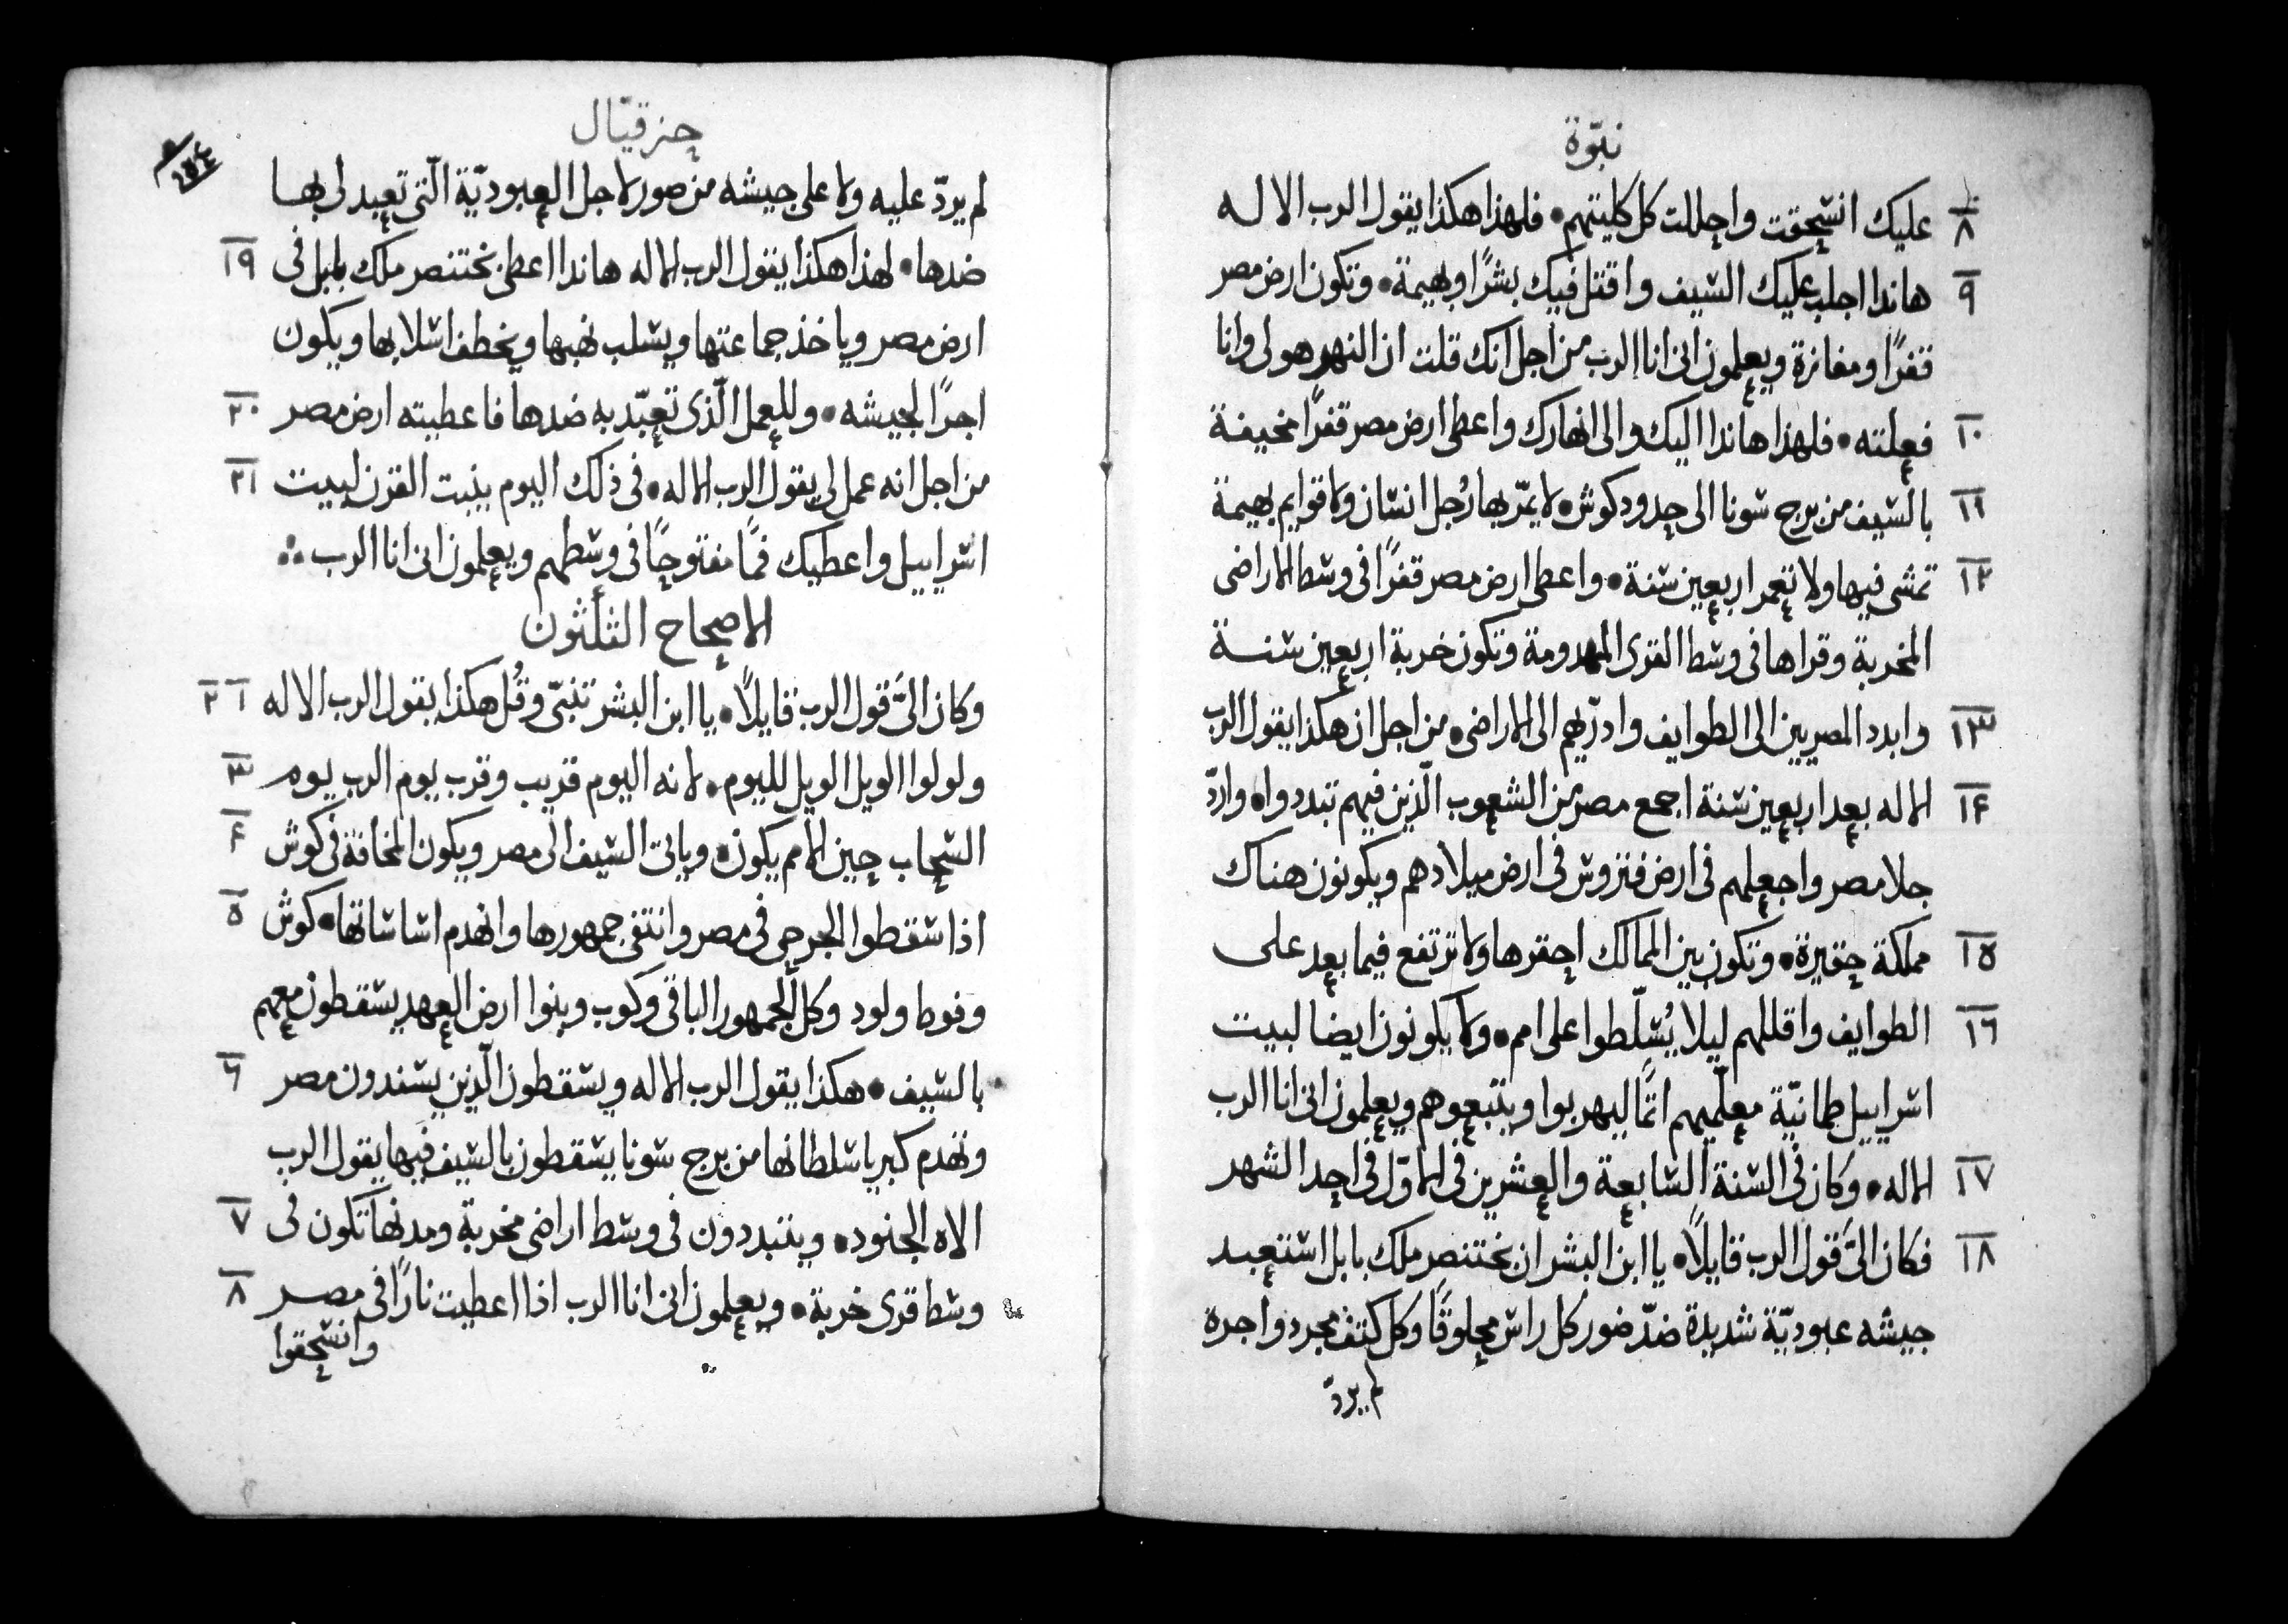 نبوّة
٨ عليك انسحقت واحللت كل كليتهم • فلهذا هكذا يقول الرب الاله
٩ هاندا اجلب عليك السيف واقتل فيك بشرًا وبهيمة • وتكون ارض مصر
قفرًا ومفازة ويعلمون انى انا الرب من اجل انك قلت ان النهر هو لى وانا
١٠ فعلته • فلهذا هاندا اليك والى انهارك واعطى ارض مصر قفرًا مخيفة
١١ بالسيف من برج سونا الى حدود كوش • لا يمرّ بها رُجل انسان ولا قوايم بهيمة
١٢ تمشى فيها ولا تعمر اربعين سنة • واعطى ارض مصر قفرًا فى وسط الاراضى
المخربة وقراها فى وسط القرى المهدومة وتكون خربة اربعين سنة
١٣ وابدد المصريين الى الطوايف وادرّيهم الى الاراضى • من اجل ان هكذا يقول الرب
١٤ الاله بعد اربعين سنة اجمع مصر من الشعوب الّذين فيهم تبددوا • واردّ
جلا مصر واجعلهم فى ارض فتروس فى ارض ميلادهم ويكونون هناك
١٥ مملكة حقيرة • وتكون بين الممالك احقرها ولا ترتفع فيما بعد على
١٦ الطوايف واقللهم ليلا يُسلّطوا على امم • ولا يكونون ايضا لبيت
اسراييل طمانيّة معلّميهم اثمًا ليهربوا ويتبعوهم ويعلمون انى انا الرب
١٧ الاله • وكان فى السنة السابعة والعشرين فى الاوّل فى احد الشهر
١٨ فكان الىّ قول الرب قايلًا • يا ابن البشر ان بختنصر ملك بابل استعبد
جيشه عبوديّة شديدة ضدّ ضور كل راس محلوقًا وكل كتف مجرد واجرة
لم يردّ
حزقيال
٢٥٤
لم يردّ عليه ولا على جيشه من صور لاجل العبوديّة الّتى تعبد لى بها
١٩ ضدها • لهذا هكذا يقول الرب الاله هاندا اعطى بختنصر ملك بابل فى
ارض مصر وياخذ جماعتها ويسلب نهبها ويخطف اسلابها ويكون
٢٠ اجرًا لجيشه • وللعمل الّذى تعبّد به ضدها فاعطيته ارض مصر
٢١ من اجل انه عمل لى يقول الرب الاله • فى ذلك اليوم ينبت القرن لبيت
اسراييل واعطيك فمًا مفتوحًا فى وسطهم ويعلمون انى انا الرب ∴
الاصحاح الثلثون
١ ٢ وكان الىّ قول الرب قايلًا • يا ابن البشر تنبّى وقُل هكذا يقول الرب الاله
٣ ولولوا الويل الويل لليوم • لانه اليوم قريب وقرب يوم الرب يوم
٤ السحاب حين الامم يكون • وياتى السيف الى مصر ويكون المخافة فى كوش
٥ اذا سقطوا الجرحى فى مصر وانتفى جمهورها وانهدم اساساتها • كوش
وفوط ولود وكل الجمهور الباقى وكوب وبنوا ارض العهد يسقطون معهم
٦ بالسيف • هكذا يقول الرب الاله ويسقطون الّذين يسندون مصر
وتهدم كبريا سلطانها من برج سونا يسقطون بالسيف فيها يقول الرب
٧ الاه الجنود • ويتبددون فى وسط اراضى مخربة ومدنها تكون فى
٨ وسط قرى خربة • ويعلمون انى انا الرب اذا اعطيت نارًا فى مصر
وانسحقوا